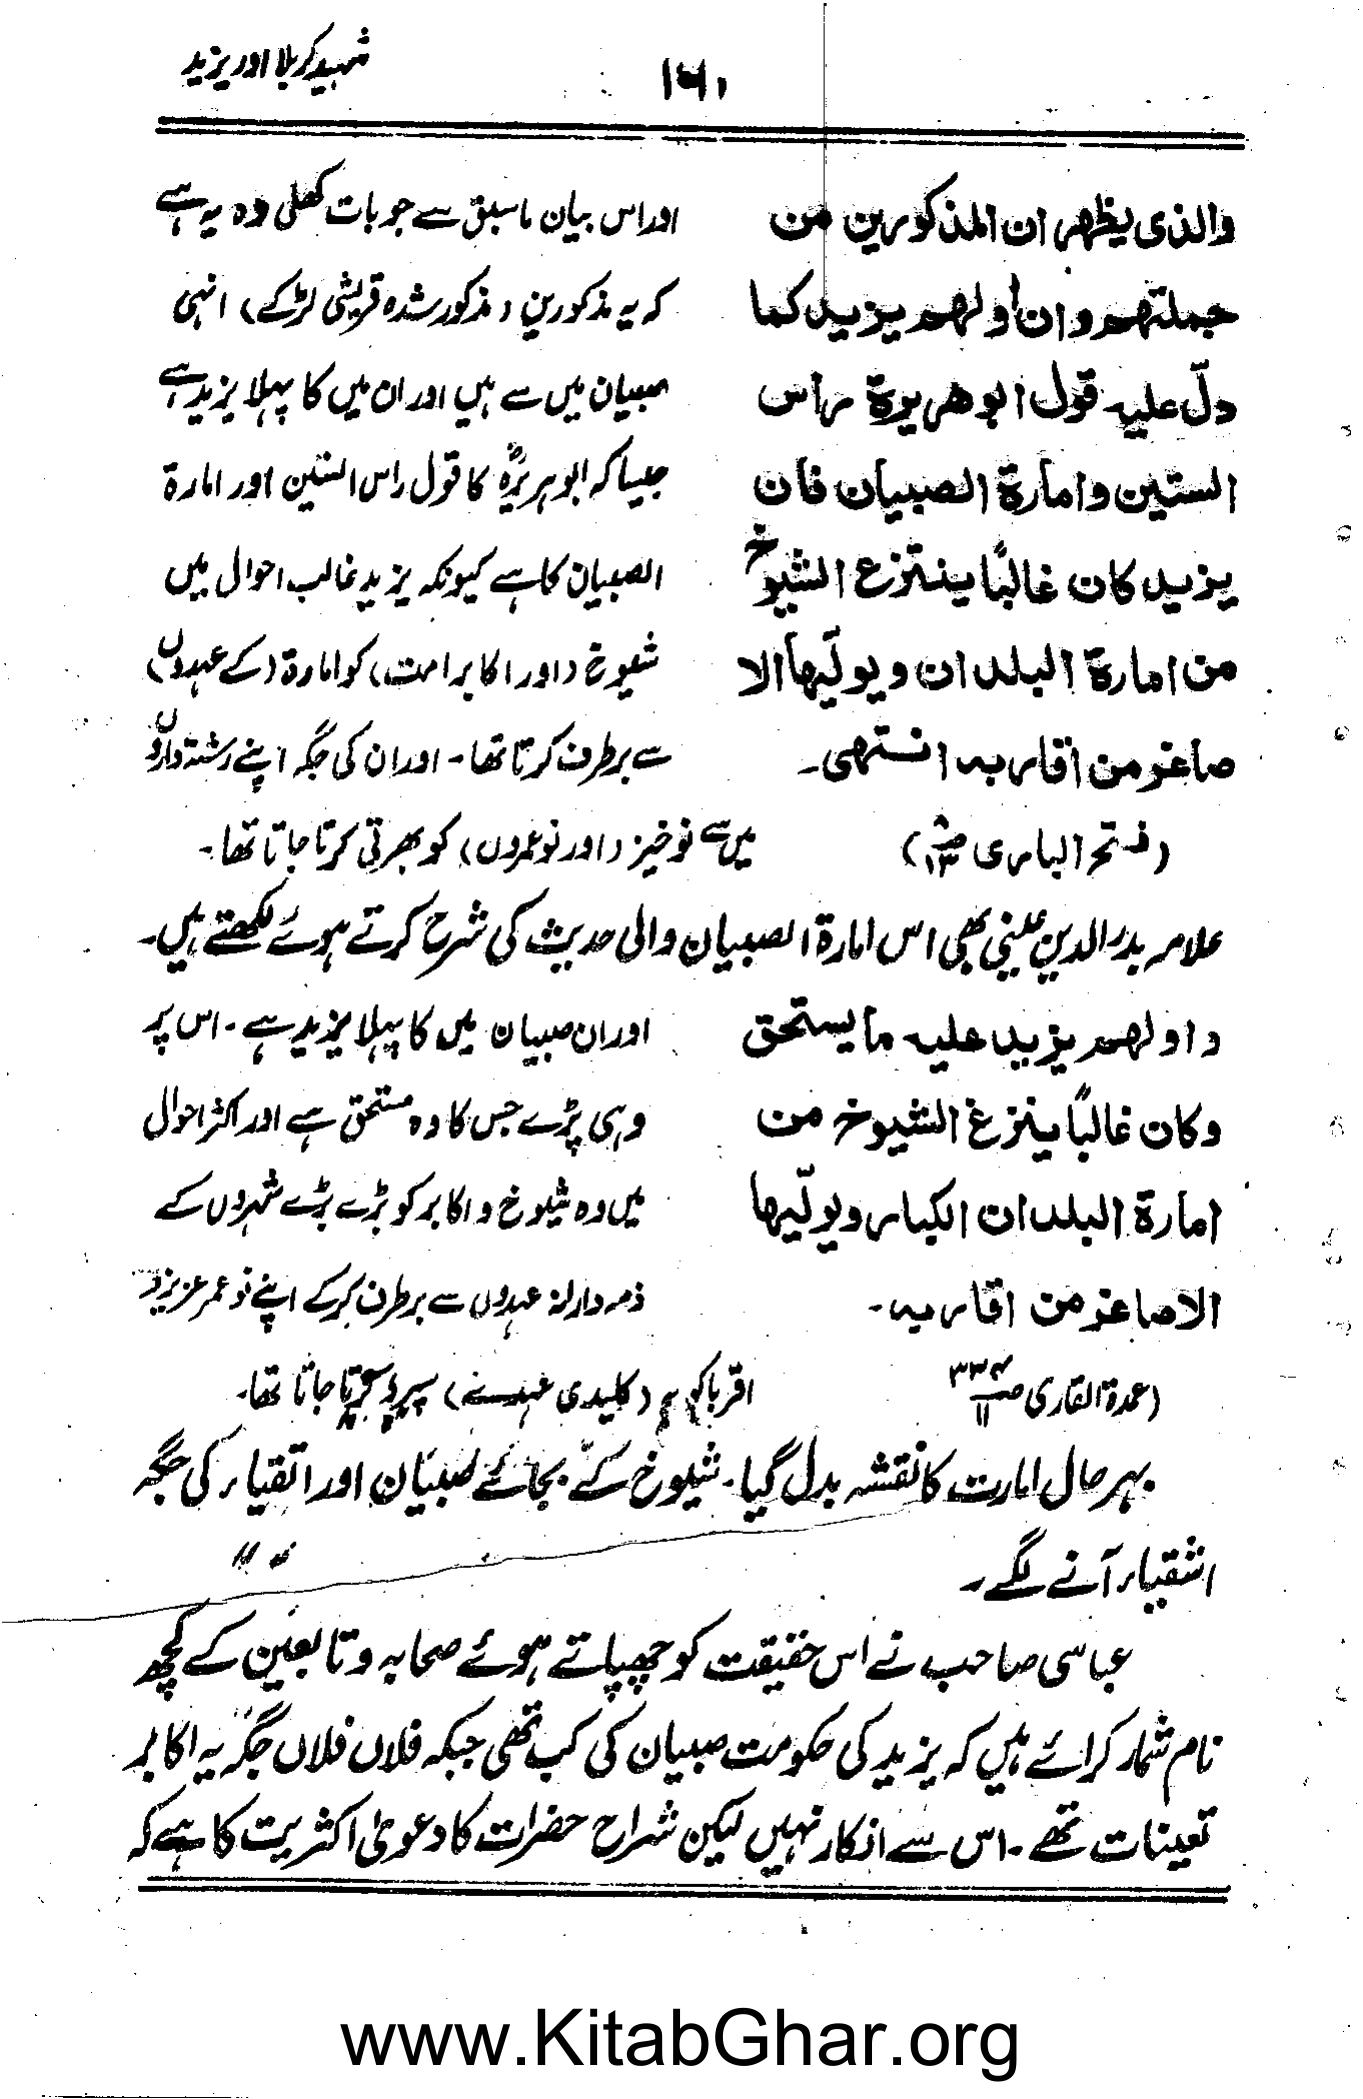 شہید کربلا اور یزید
۱۶۱
والذی یظھر ان المذکورین من
جملتھم وان اولھم یزید کما
دلّ علیہ قول ابو ھریرة راس
الستین وامارة الصبیان فان
یزید کان غالبًا ینتزع الشیوخ
من امارة البلدان ویولّیھا الا
صاغر من اقاربہ انتھی۔
(فتح الباری ص ۸ ۱۳)
اور اس بیان ماسبق سے جو بات کھلی وہ یہ ہے
کہ یہ مذکورین (مذکور شدہ قریشی لڑکے) انہی
صبیان میں سے ہیں اور ان میں کا پہلا یزید ہے
جیسا کہ ابوہریرہؓ کا قول راس الستین اور امارة
الصبیان کا ہے کیونکہ یزید غالب احوال میں
شیوخ (اور اکابر امت) کو امارة (کے عہدوں)
سے برطرف کرتا تھا۔ اور ان کی جگہ اپنے رشتہ داروں
میں سے نوخیز (اور نوعمروں) کو بھرتی کرتا جاتا تھا۔
علامہ بدر الدین عینی بھی اس امارة الصبیان والی حدیث کی شرح کرتے ہوئے لکھتے ہیں۔
واولھم یزید علیہ ما یستحق
وکان غالبًا ینزغ الشیوخ من
امارة البلدان الکبار ویولّیھا
الاصاغر من اقاربہ۔
(عمدة القاری ص ۳۳۴ ۱۱)
اور ان صبیان میں کا پہلا یزید ہے۔ اس پر
وہی پڑے جس کا وہ مستحق ہے اور اکثر احوال
میں وہ شیوخ و اکابر کو بڑے بڑے شہروں کے
ذمہ دارانہ عہدوں سے برطرف کرکے اپنے نو عمر عزیزو
اقربا کو (کلیدی عہدے) سپرد کرتا جاتا تھا۔
بہرحال امارت کا نقشہ بدل گیا۔ شیوخ کے بجائے صبیان اور اتقیاء کی جگہ
اشقیاء آنے لگے۔
عباسی صاحب نے اس حقیقت کو چھپاتے ہوئے صحابہ و تابعین کے کچھ
نام شمار کرائے ہیں کہ یزید کی حکومت صبیان کی کب تھی جبکہ فلاں فلاں جگہ یہ اکابر
تعینات تھے۔ اس سے انکار نہیں لیکن شراح حضرات کا دعویٰ اکثریت کا ہے کہ
www.KitabGhar.org